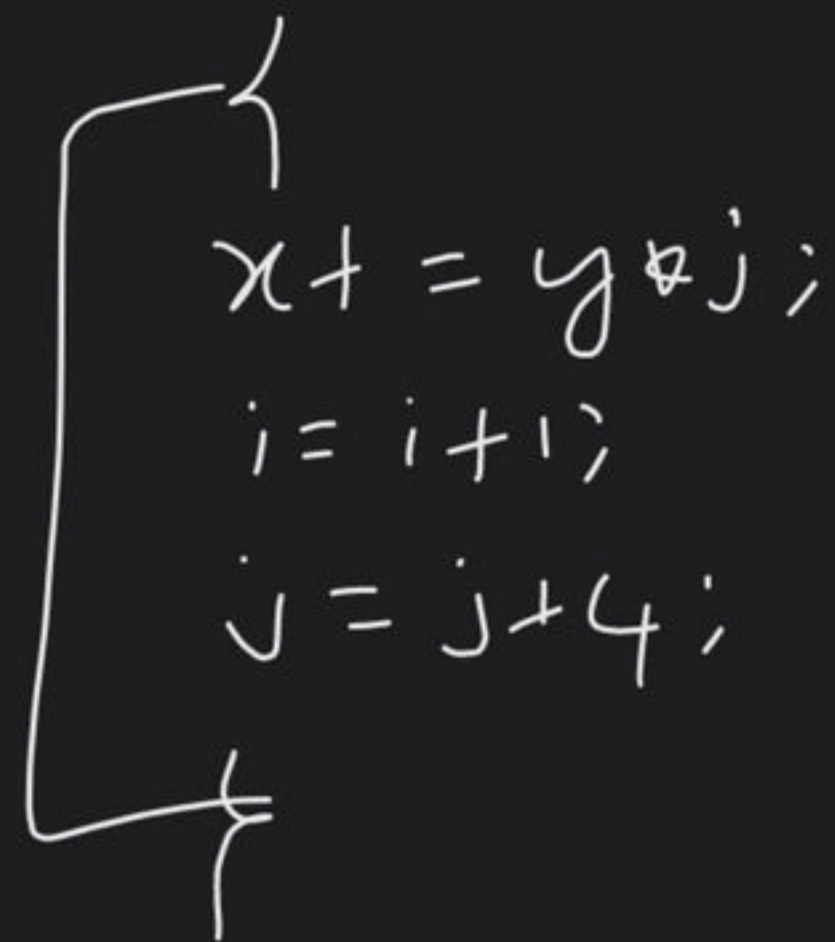 {
x+ = y*j;
i = i+1;
j = j+4;
}